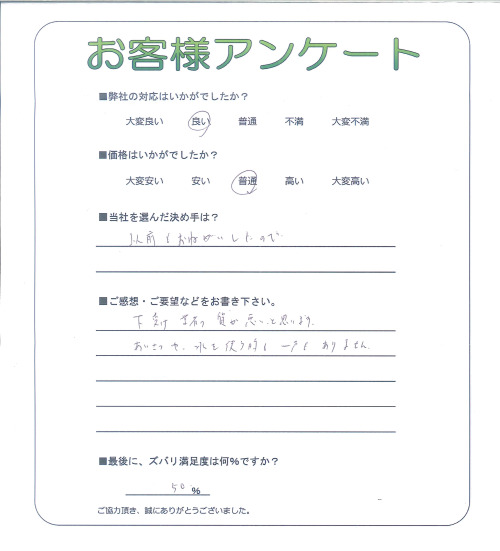 お客様アンケート
■弊社の対応はいかがでしたか？
大変良い 良い 普通 不満 大変不満
■価格はいかがでしたか？
大変安い 安い 普通 高い 大変高い
■当社を選んだ決め手は？
以前もおねがいしたので
■ご感想・ご要望などをお書き下さい。
下請け 質が悪いと思います。
あいさつや、水を使う時も一声もありません。
■最後に、ズバリ満足度は何%ですか？
50 %
ご協力頂き、誠にありがとうございました。